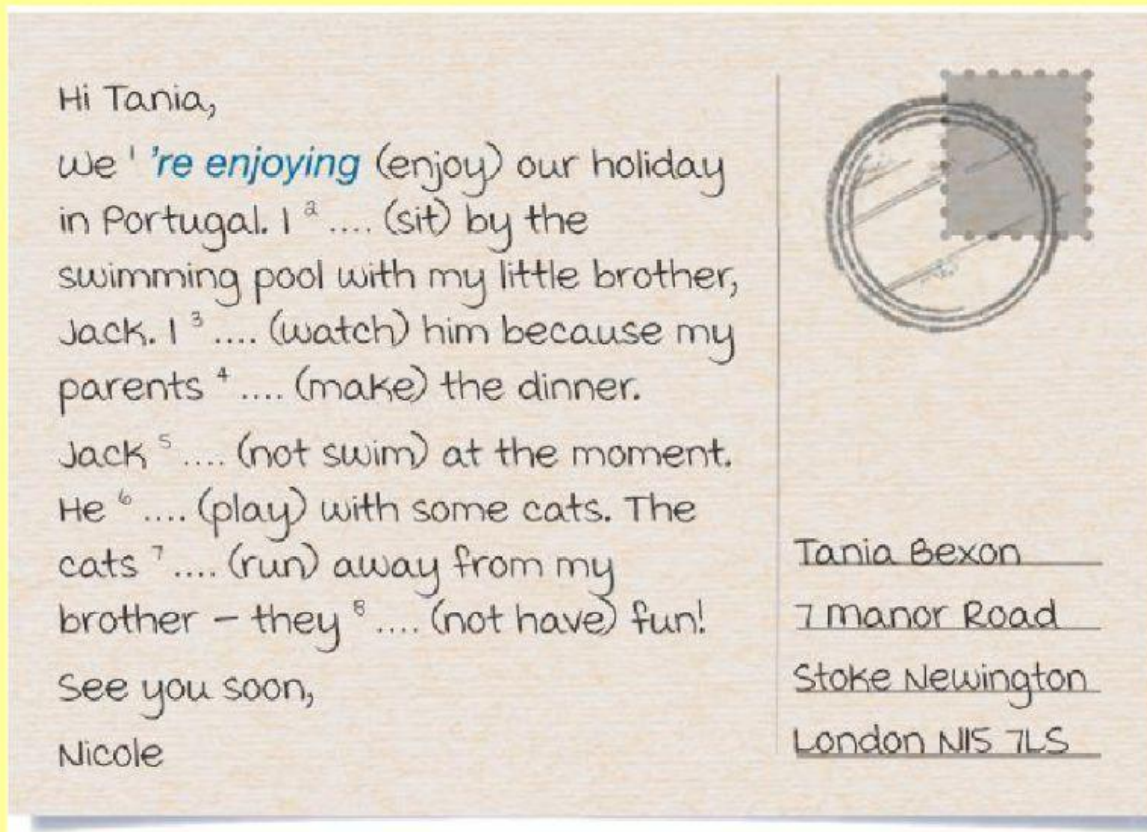 Hi Tania,
We ¹ 're enjoying (enjoy) our holiday
in Portugal. I ² .... (sit) by the
swimming pool with my little brother,
Jack. I ³ .... (watch) him because my
parents ⁴ .... (make) the dinner.
Jack ⁵ .... (not swim) at the moment.
He ⁶ .... (play) with some cats. The
cats ⁷ .... (run) away from my
brother – they ⁸ .... (not have) fun!
See you soon,
Nicole
Tania Bexon
7 Manor Road
Stoke Newington
London N15 7LS